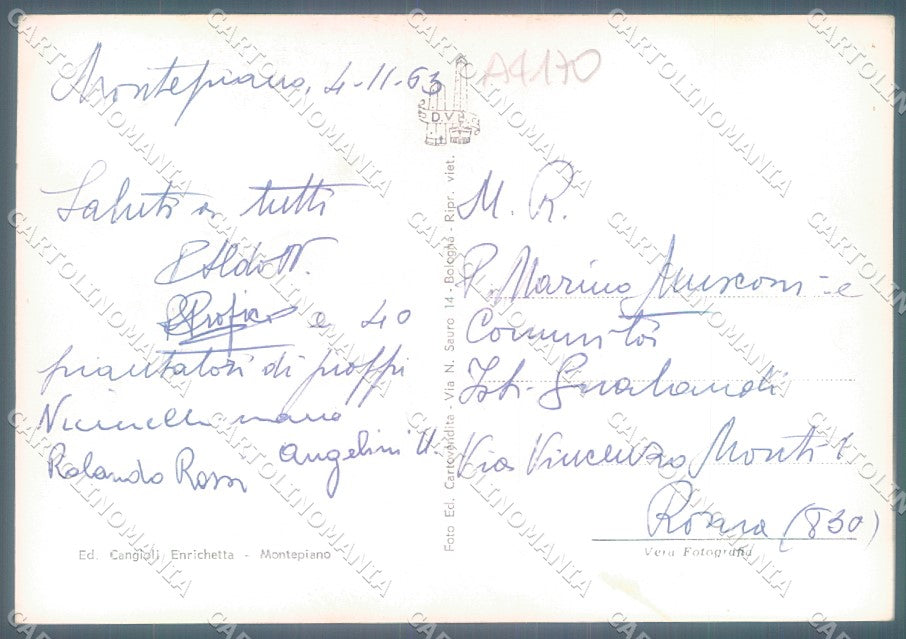 Montepiano, 4-11-63
A4170
D.V.
Saluti a tutti
P. Aldo W.
e 40
piantatori di pioppi
Rolando Rossi
Angelini U.
M. R.
P. Marino e
Comunità
Ist.
Via Vincenzo Monti 1
Roma (830)
Vera Fotografia
Ed. Cangioli Enrichetta - Montepiano
Foto Ed. Cartovendita - Via N. Sauro 14 - Bologna - Ripr. viet.
CARTOLINOMANIA